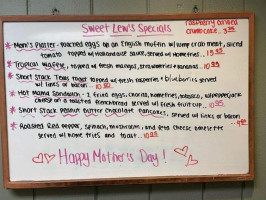 Sweet Lew's Specials
raspberry almond
crumbcake.. 3.95
* Mom's Platter - poached eggs on an English muffin w/ lump crab meat, sliced
tomato topped w/ hollandaise sauce, served w/ homefries...
* Tropical Waffle, topped w/ fresh mangos, strawberries + bananas
* Short Stack Texas Toast topped w/ fresh raspberries + blueberries served
w/ links or bacon
* Hot Mama Sandwich - 2 fried eggs, chorizo, homefries, tobasco, w/ pepperjack
cheese on a toasted french bread served w/ fresh fruit cup..
* Short Stack Peanut Butter Chocolate Pancakes, served w/ links or bacon
* Roasted Red pepper, spinach, mushroom, and feta cheese omelette
served w/ home fries and toast...
Happy Mother's Day!